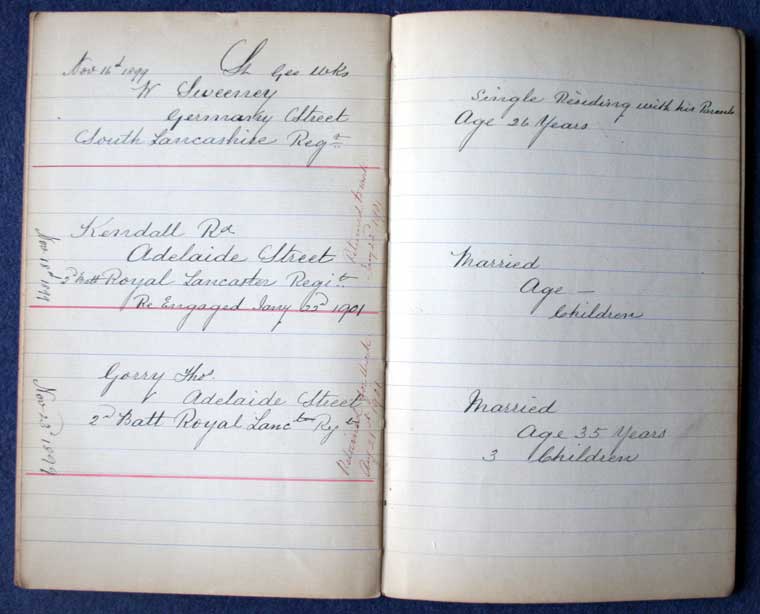 Nov 16th 1899 St Geo Wks
W Sweeney
Germany Street
South Lancashire Regn
Single Residing with his Parents
Age 26 Years
Kendall Rd
Adelaide Street
3rd Batt Royal Lancaster Regit
Re Engaged Jany 22nd 1901
Nov 13th 1899
Returned to work
1901
Married
Age —
Children
Gorry Thos.
Adelaide Street
2nd Batt Royal Lancter Regt
Nov 13th 1899
Returned to work
Married
Age 35 Years
3 Children